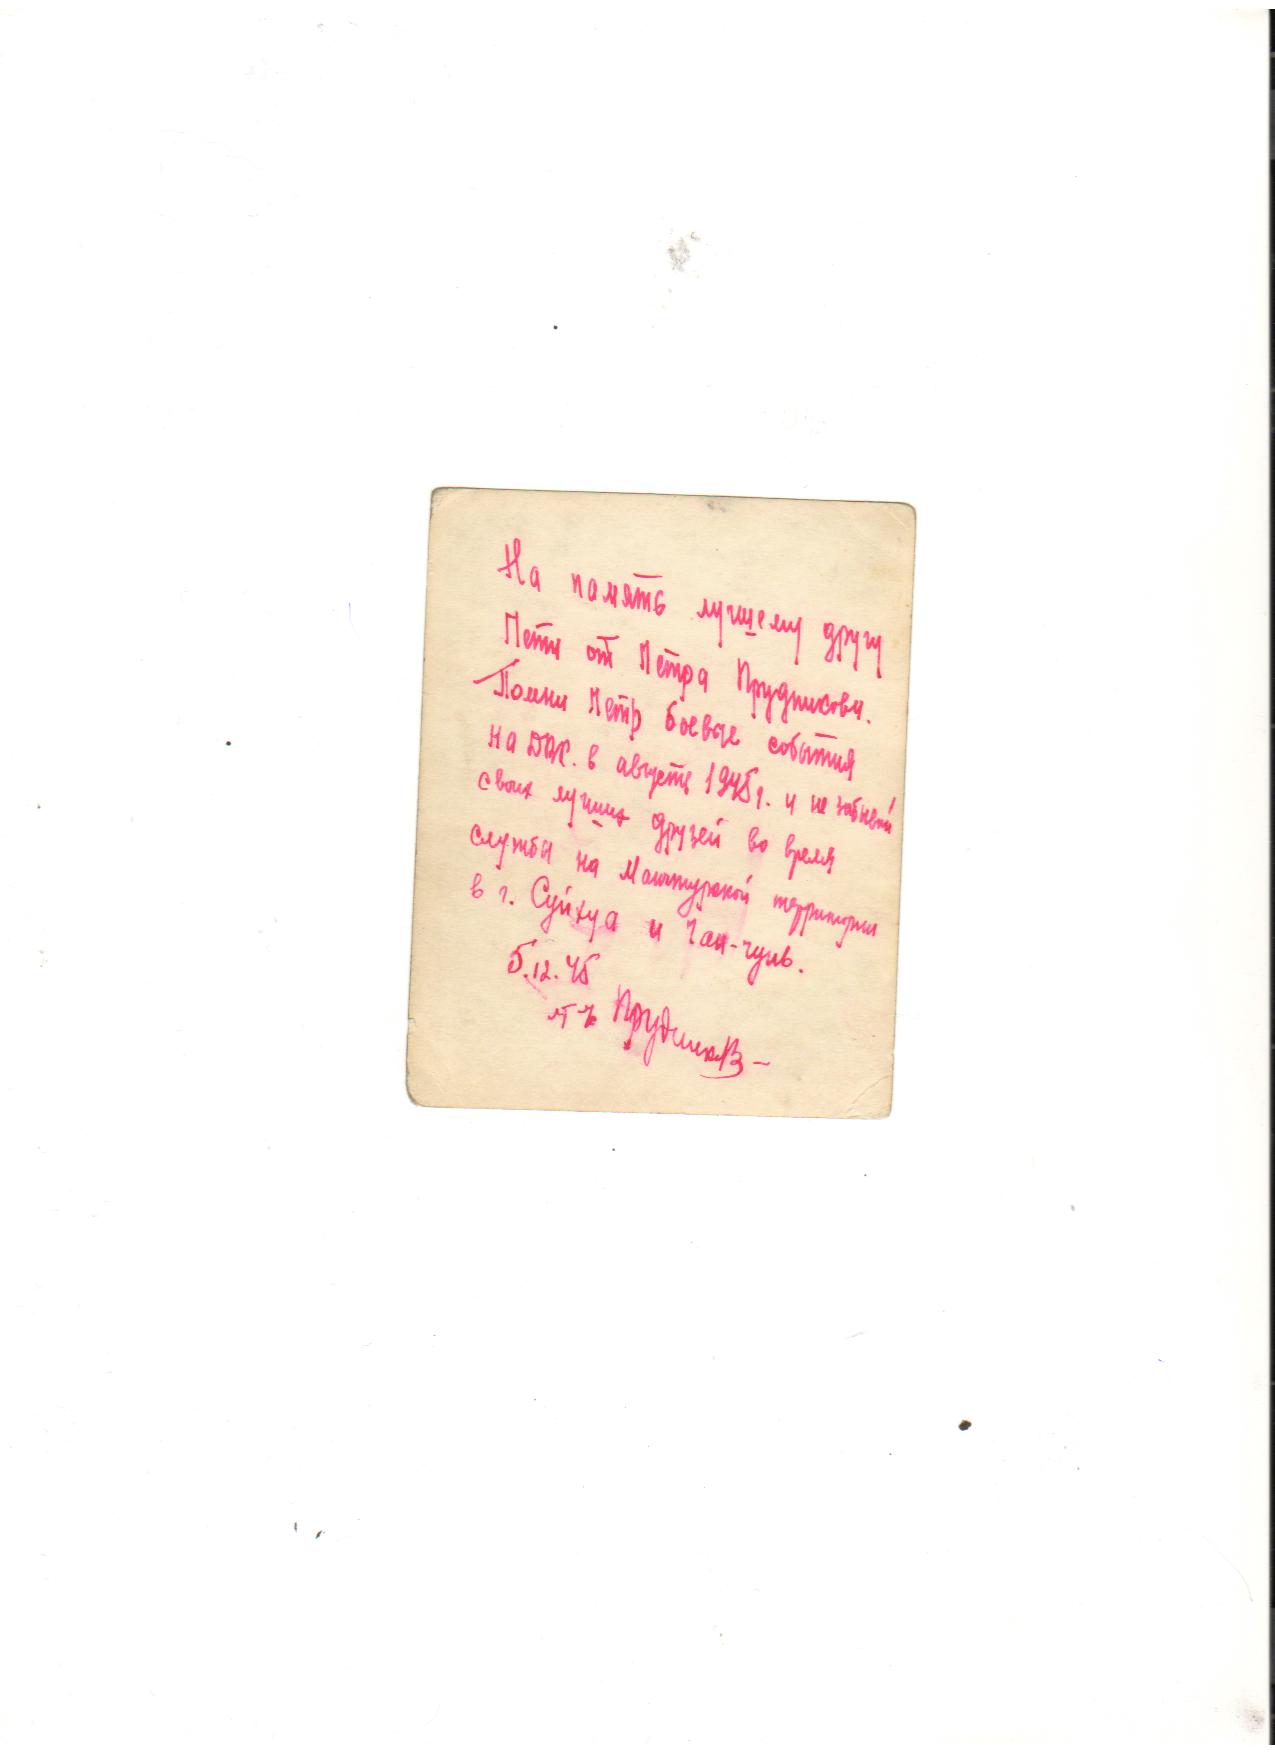 На память лучшему другу
Пети от Петра Прудникова.
Помни Петр боевые события
на ДВК. в августе 1945 г. и не забывай
своих лучших друзей во время
службы на Манчжурской территории
в г. Суйхуа и Чан-чунь.
5.12.45
Прудников